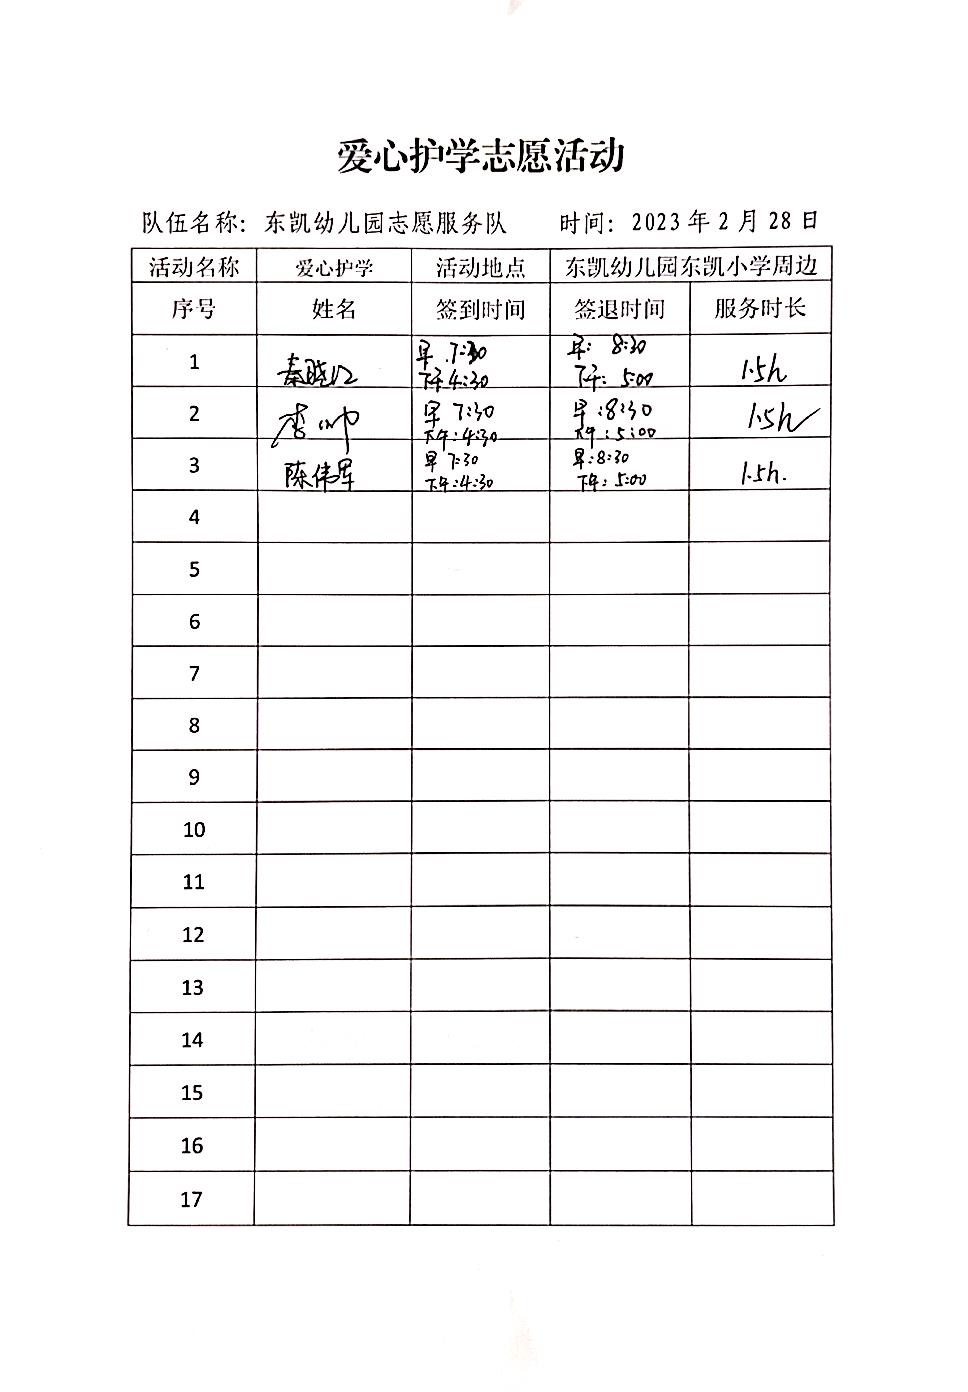 爱心护学志愿活动
队伍名称：东凯幼儿园志愿服务队 时间：2023年2月28日
活动名称 爱心护学 活动地点 东凯幼儿园东凯小学周边
序号 姓名 签到时间 签退时间 服务时长
1 秦晓江 早 7:30 下午4:30 早: 8:30 下午: 5:00 1.5h
2 李 帅 早 7:30 下午:4:30 早:8:30 下午:5:00 1.5h
3 陈伟军 早 7:30 下午:4:30 早:8:30 下午: 5:00 1.5h.
4
5
6
7
8
9
10
11
12
13
14
15
16
17